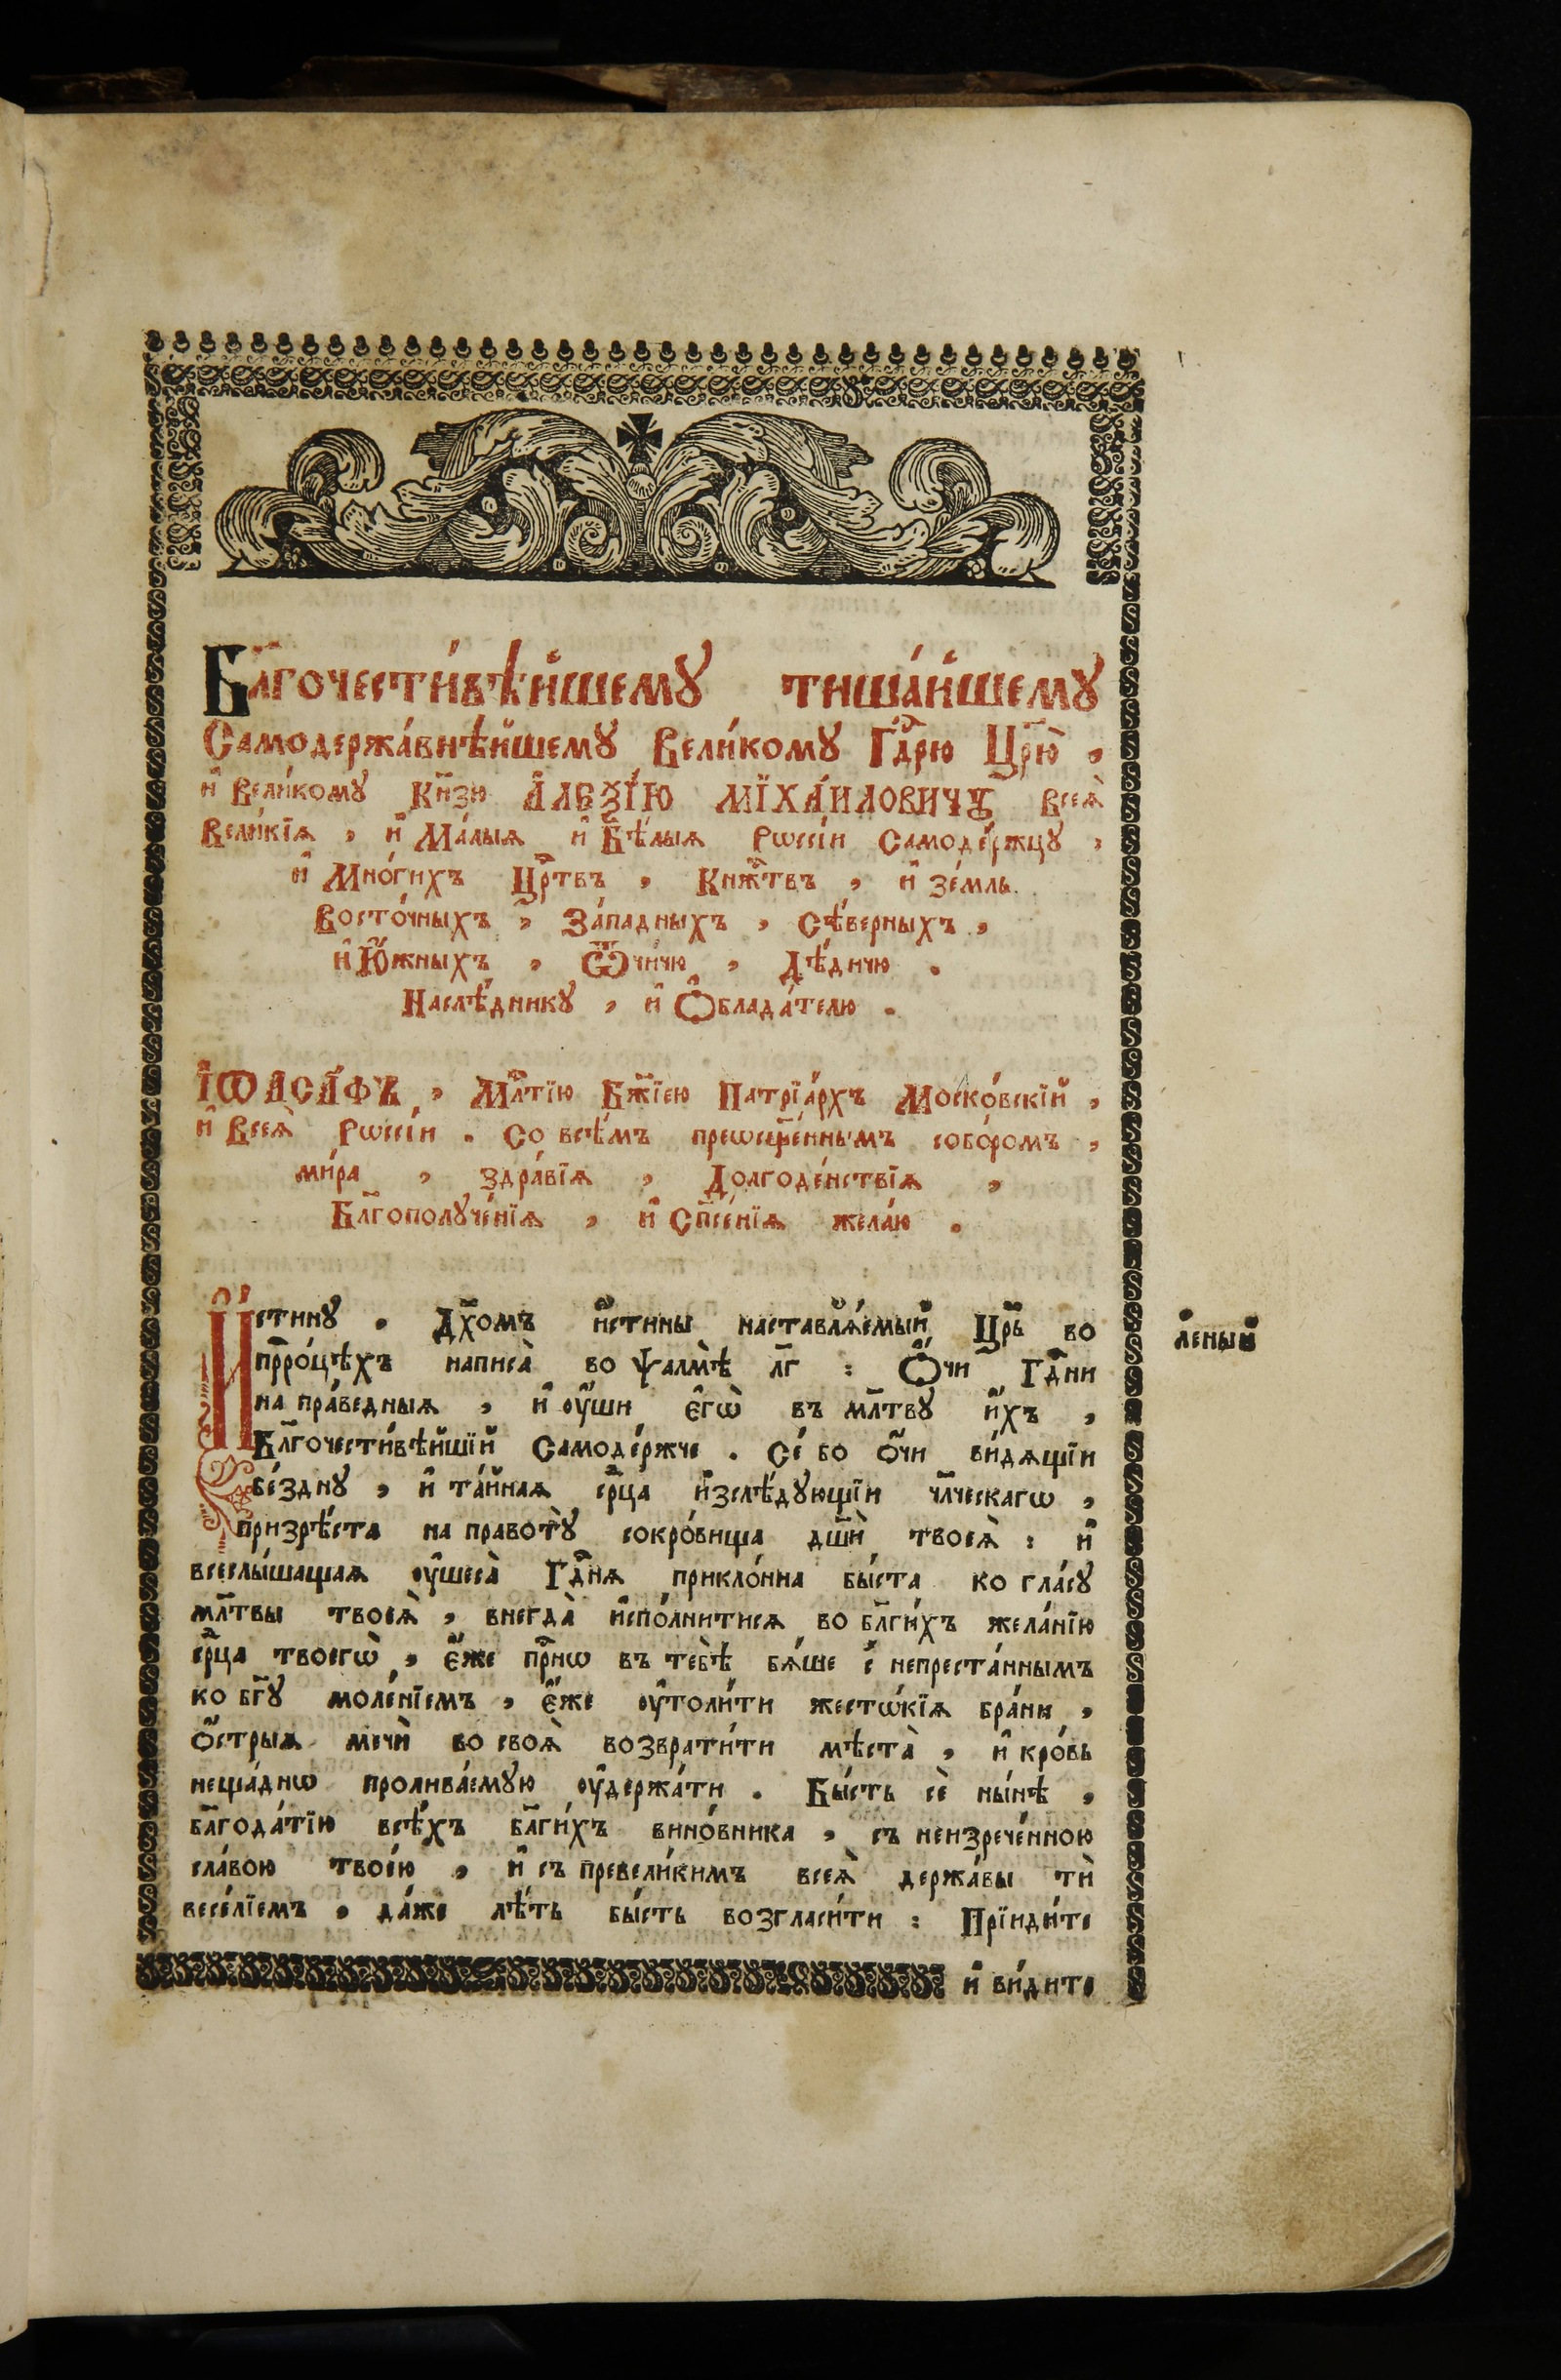 Бл҃гочести́вѣ́йшему тиша́йшему
Самодержа́внѣ́йшему Вели́кому Гдⷭ҇рю Цр҃ю̀ ,
и҆ Вели́кому Кн҃зи А҆леѯі́ю Міха́иловичꙋ Всеѧ̀
Вели́кїѧ , и҆ Ма́лыѧ и҆ Бѣ́лыѧ Рѡссі́и Самоде́ржцу ,
и҆ Мно́гихъ Црⷭ҇твъ , Кнѧ́жⷭ҇твъ , и҆ зе́мль .
Восто́чныхъ , За́падныхъ , Сѣ́верныхъ ,
и҆ Ю҆́жныхъ , Ѿчи́чю , Дѣ́дичю .
Наслѣ́днику , и҆ Ѻ҆блада́телю .
І҆ѡаса́фъ , Млⷭ҇тїю Бж҃їею Патрїа́рхъ Моско́вскїй ,
и҆ Всеѧ̀ Рѡссі́и . Со всѣ́мъ преѡсщ҃е́ннымъ собо́ромъ ,
ми́ра , здра́вїѧ , Долгоде́нствїѧ ,
Бл҃гополуче́нїѧ , и҆ Сп҃се́нїѧ жела́ю .
И҆́стину . Дх҃омъ и҆́стины наставлѧ́емый Цр҃ь во
ле́ный
прⷪ҇ро́цѣхъ написа̀ во ѱалмѣ̀ л҃г : Ѻ҆́чи Гдⷭ҇ни
на пра́ведныѧ , и҆ оу҆́ши є҆гѡ̀ въ млⷭ҇тву и҆́хъ ,
Бл҃гочести́вѣ́йшїй Самоде́ржче . Се́ бо ѻ҆́чи ви́дѧщїи
бе́здну , и҆ та́йнаѧ срⷣца и҆зслѣ́дующїи чл҃ческагѡ ,
призрѣ́ста на правоту̀ сокро́вища дш҃ѝ твоеѧ̀ : и҆
вселы́шащаѧ оу҆шеса̀ Гдⷭ҇нѧ прикло́нна бы́ста ко гла́су
мл҃твы твоеѧ̀ , внегда̀ и҆спо́лнитисѧ во бл҃ги́хъ жела́нїю
срⷣца твоегѡ̀ , є҆́же прⷭ҇нѡ въ тебѣ̀ бѧ́ше с̾ непреста́ннымъ
ко бг҃у моле́нїемъ , є҆́же оу҆толи́ти жестѡ́кїѧ бра́ни ,
ѻ҆́стрыѧ мечѝ во своѧ̀ возврати́ти мѣста̀ , и҆ кро́вь
неща́днѡ пролива́емую оу҆держа́ти . Бы́сть сѐ ны́нѣ ,
бл҃года́тїю всѣ́хъ бл҃ги́хъ вино́вника , съ неизрече́нною
сла́вою твое́ю , и҆ съ превели́кимъ всеѧ̀ держа́вы тѝ
весе́лїемъ . да́же лѣ́ть бы́сть возгласи́ти : Прїиди́те
и҆ ви́дите